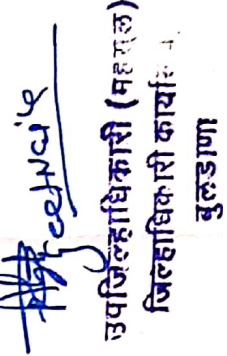 उपजिल्हाधिकारी (महसूल)
जिल्हाधिकारी कार्यालय
बुलडाणा